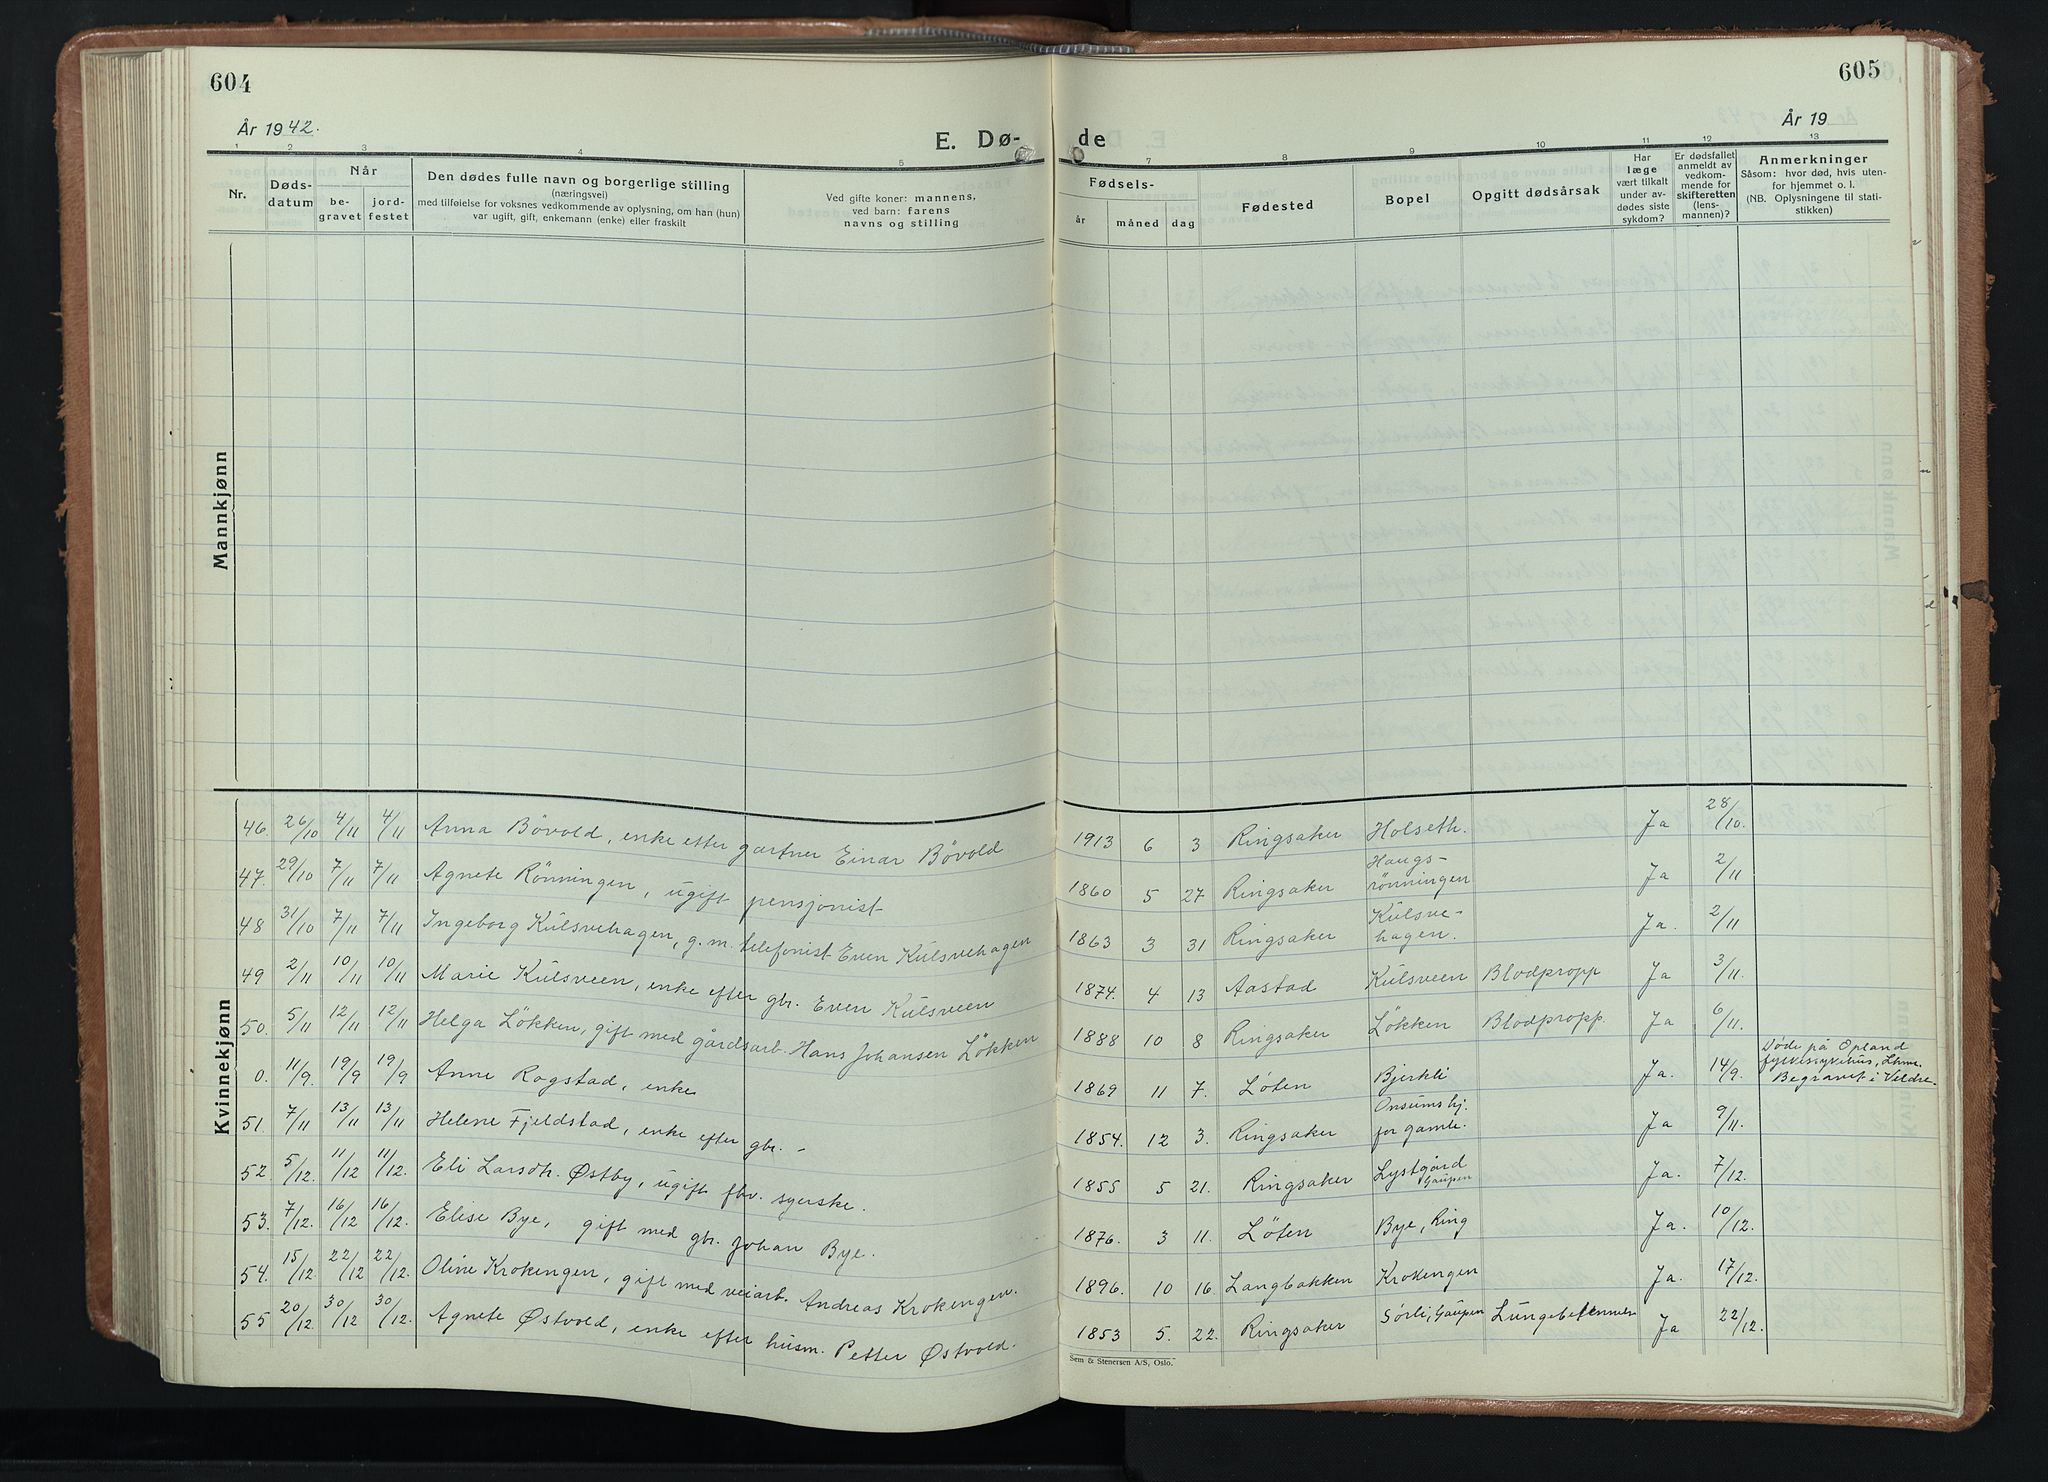 604
605
År 1942.
År 19
E. Dø-
de
1 2 3 4 5 7 8 9 10 11 12 13
Nr.
Døds-
datum
Når
be-
gravet
jord-
festet
Den dødes fulle navn og borgerlige stilling
(næringsvei)
med tilføielse for voksnes vedkommende av oplysning, om han (hun)
var ugift, gift, enkemann (enke) eller fraskilt
Ved gifte koner: mannens,
ved barn: farens
navns og stilling
Fødsels-
år måned dag
Fødested
Bopel
Opgitt dødsårsak
Har
læge
vært tilkalt
under av-
dødes siste
sykdom?
Er dødsfallet
anmeldt av
vedkom-
mende for
skifteretten
(lens-
mannen)?
Anmerkninger
Såsom: hvor død, hvis uten-
for hjemmet o. l.
(NB. Oplysningene til stati-
stikken)
Mannkjønn
Kvinnekjønn
46. 26/10 4/11 4/11 Anna Bövold, enke etter gartner Einar Bövold 1913 6 3 Ringsaker Holseth. Ja 28/10.
47. 29/10 7/11 7/11 Agnete Rönningen, ugift pensjonist 1860 5 27 Ringsaker Haugs-
rönningen Ja 2/11
48 31/10 7/11 7/11 Ingeborg Kulsvehagen, g.m. telefonist Even Kulsvehagen 1863 3 31 Ringsaker Kulsve-
hagen. Ja. 2/11
49 2/11 10/11 10/11 Marie Kulsveen, enke efter gbr. Even Kulsveen 1874. 4 13 Aastad Kulsveen Blodpropp Ja 3/11.
50. 5/11 12/11 12/11 Helga Lökken, gift med gårdsarb. Hans Johansen Lökken 1888 10 8 Ringsaker Lökken Blodpropp. Ja 6/11.
0. 11/9. 19/9 19/9 Anne Rogstad, enke 1869 11 7. Løten Bjerkli Ja. 14/9. Døde på Opland
fylkessykehus, Lhmr.
Begravet i Veldre.
51. 7/11 13/11 13/11 Helene Fjeldstad, enke efter gbr. - 1854. 12 3. Ringsaker Onsumshj.
for gamle. Ja 9/11.
52 5/12. 11/12 11/12. Eli Larsdh. Østby, ugift fhv. syerske. 1855 5 21. Ringsaker Lystgård
Gaupen Ja. 7/12.
53. 7/12. 16/12 16/12. Elise Bye, gift med gbr. Johan Bye. 1876. 3 11. Løten Bye, Ring Ja. 10/12.
54. 15/12. 22/12 22/12. Oline Krokengen, gift med veiarb. Andreas Krokengen. 1896. 10 16. Langbakken Krokengen Ja. 17/12.
55 20/12. 30/12 30/12. Agnete Østvold, enke efter husm. Petter Østvold. 1853 5. 22. Ringsaker Sørli, Gaupen Lungebetennelse Ja 22/12.
Sem & Stenersen A/S, Oslo.